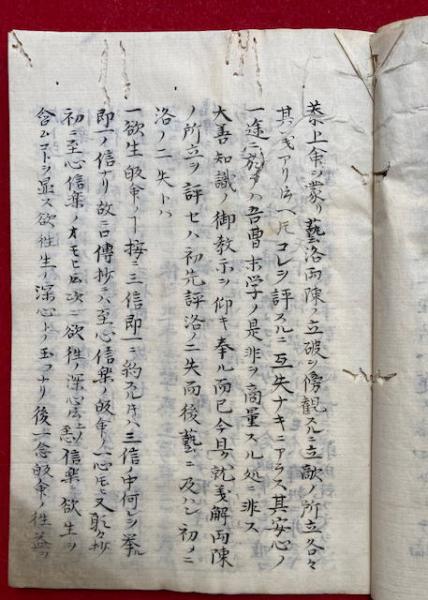 恭上命ヲ蒙リ藝洛両陳ノ立破ヲ傍観スルニ立敵ノ所立各々
其ノ義アリト云ヘ𪜈コレヲ評スルニ互失ナキニアラス其安心ノ
一途ニ於テハ吾曹末学ノ是非ヲ商量スル処ニ非ス
大善知識ノ御教示ヲ仰キ奉ル而已今且ク就義解両陳
ノ所立ヲ評セハ初先評洛ノ二失而後藝ニ及ハン初メニ
洛ノ二失トハ
一欲生帰命ノ接ニ三信即一ニ約スルトキハ三信ノ中何レヲ挙ルモ
即一ノ信ナリ故ニ口傳抄ニハ至心信楽ノ帰命ノ一心モ又
初ニ至心信楽ノオモヒ次ニ欲生ノ深心信楽ト欲生ヲ
含ムコトヲ显ス欲往生ノ深心トノ玉フナリ後一念帰命ノ往益ヲ